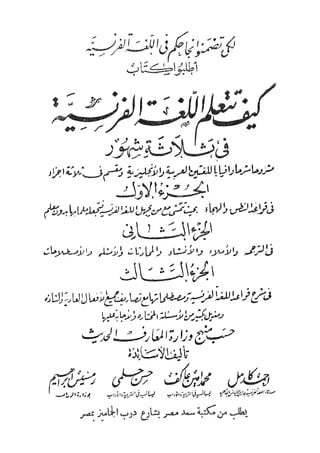 لكي تضمنوا نجاحكم فى اللغة الفرنسية
أطلبوا كتاب
كيف تتعلم اللغة الفرنسية
فى ثلاثة شهور
مشروحا شرحا وافيا باللغتين العربية والانجليزية ومقسم فى ثلاثة اجزاء
الجزء الأول
فى قواعد النطق والهجاء بحيث تتمشى مع من يجهل اللغة الفرنسية لتجعله ملما بها بدون معلم
الجزء الثانى
فى الترجمه والاملاء والانشاء والمحادثات والأمثله والاصطلاحات
الجزء الثالث
فى شرح قواعد اللغة الفرنسية ومصطلحاتها مع تصاريف جميع الأفعال العادية والشاذه
كثير من الأسئلة المختاره والأجابة عليها
حسب منهج وزارة المعارف الحديث
تأليف الأساتذة
احمد كامل محمد امين عاكف حسن حلمى رمسيس ابراهيم
يطلب من مكتبة سعد مصر بشارع درب الجماميز بمصر